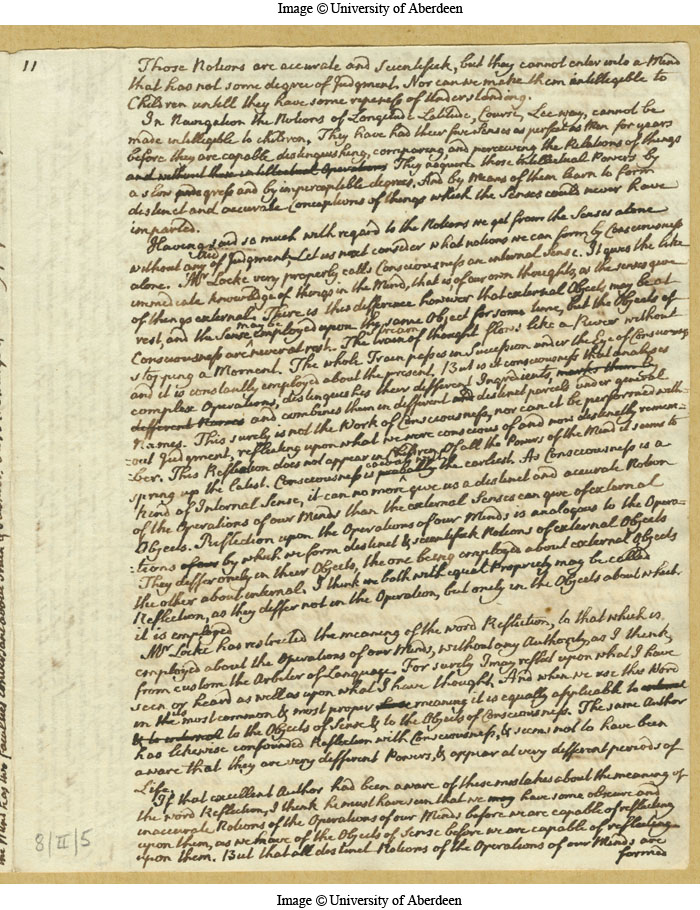 Image © University of Aberdeen
11
Those Notions are accurate and Scientifick, but they cannot enter into a Mind
that has not some degree of Judgment. Nor can we make them intelligible to
Children untill they have some ripeness of Understanding.
In Navigation the Notions of Longitude Latitude, Course, Leeway, cannot be
made intelligible to children, They have had their five Senses as perfect as Men for years
before they are capable distinguishing, comparing and perceiving the Relations of things
and without these intellectual Operations They acquire those intellectual Powers by
a slow progress and by imperceptible degrees, And by Means of them learn to form
distinct and accurate Conceptions of things which the Senses could never have
imparted.
Having said so much with regard to the Notions we get from the Senses alone
without any Aid of Judgment, Let us next consider what notions we can form by Consciousness
alone. Mr Locke very properly calls Consciousness an internal Sense. It gives the like
immediate knowledge of things in the Mind, that is of our own thoughts, as the senses give
of things external. There is this difference however that external Objects may be at
rest, and the Sense may be employed upon the same Object for some time, but the Objects of
Consciousness are never at rest. The stream of thought flows like a River without
stopping a Moment. The whole Train passes in Succession under the Eye of Consciousness
and it is constantly employed about the present, But is it consciousness that analyses
complex Operations, distinguishes their different Ingredients, marks them by
different Names and combines them in different distinct parcels under general
Names. This surely is not the Work of Consciousness, nor can it be performed with-
out Judgment, reflecting upon what we were conscious of and now distinctly remem-
ber. This Reflection does not appear in Children. Of all the Powers of the Mind it seems to
spring up the latest. Consciousness is the earliest. As Consciousness is a
kind of Internal Sense, it can no more give us a distinct and accurate Notion
of the Operations of our Minds than the external Senses can give of external
Objects. Reflection upon the Operations of our Minds is analogous to the Opera-
:tions by which we form distinct & scientifick Notions of external Objects
They differ onely in their Objects, the one being employed about external Objects
the other about internal. I think in both with equal Propriety may be called
Reflection, as they differ not in the Operation, but onely in the Objects about which
it is employed
Mr Locke has restricted the meaning of the word Reflection, to that which is
employed about the Operations of our Minds, without any Authority, as I think,
from custom the Arbiter of Language. For surely I may reflect upon what I have
seen or heard as well as upon what I have thought. And when we use this Word
in its most common & most proper meaning it is equally applicable to
to the Objects of Sense & to the Objects of Consciousness. The same Author
has likewise confounded Reflection with Consciousness, & seems not to have been
aware that they are very different Powers, & appear at very different periods of
Life.
If that excellent Author had been aware of these mistakes about the meaning of
the word Reflection, I think he must have seen that we may have some obscure and
inaccurate Notions of the Operations of our Minds before we are capable of reflecting
upon them, as we have of the Objects of Sense before we are capable of reflecting
upon them. But that all distinct Notions of the Operations of our Minds are
formed
8/II/5
Image © University of Aberdeen